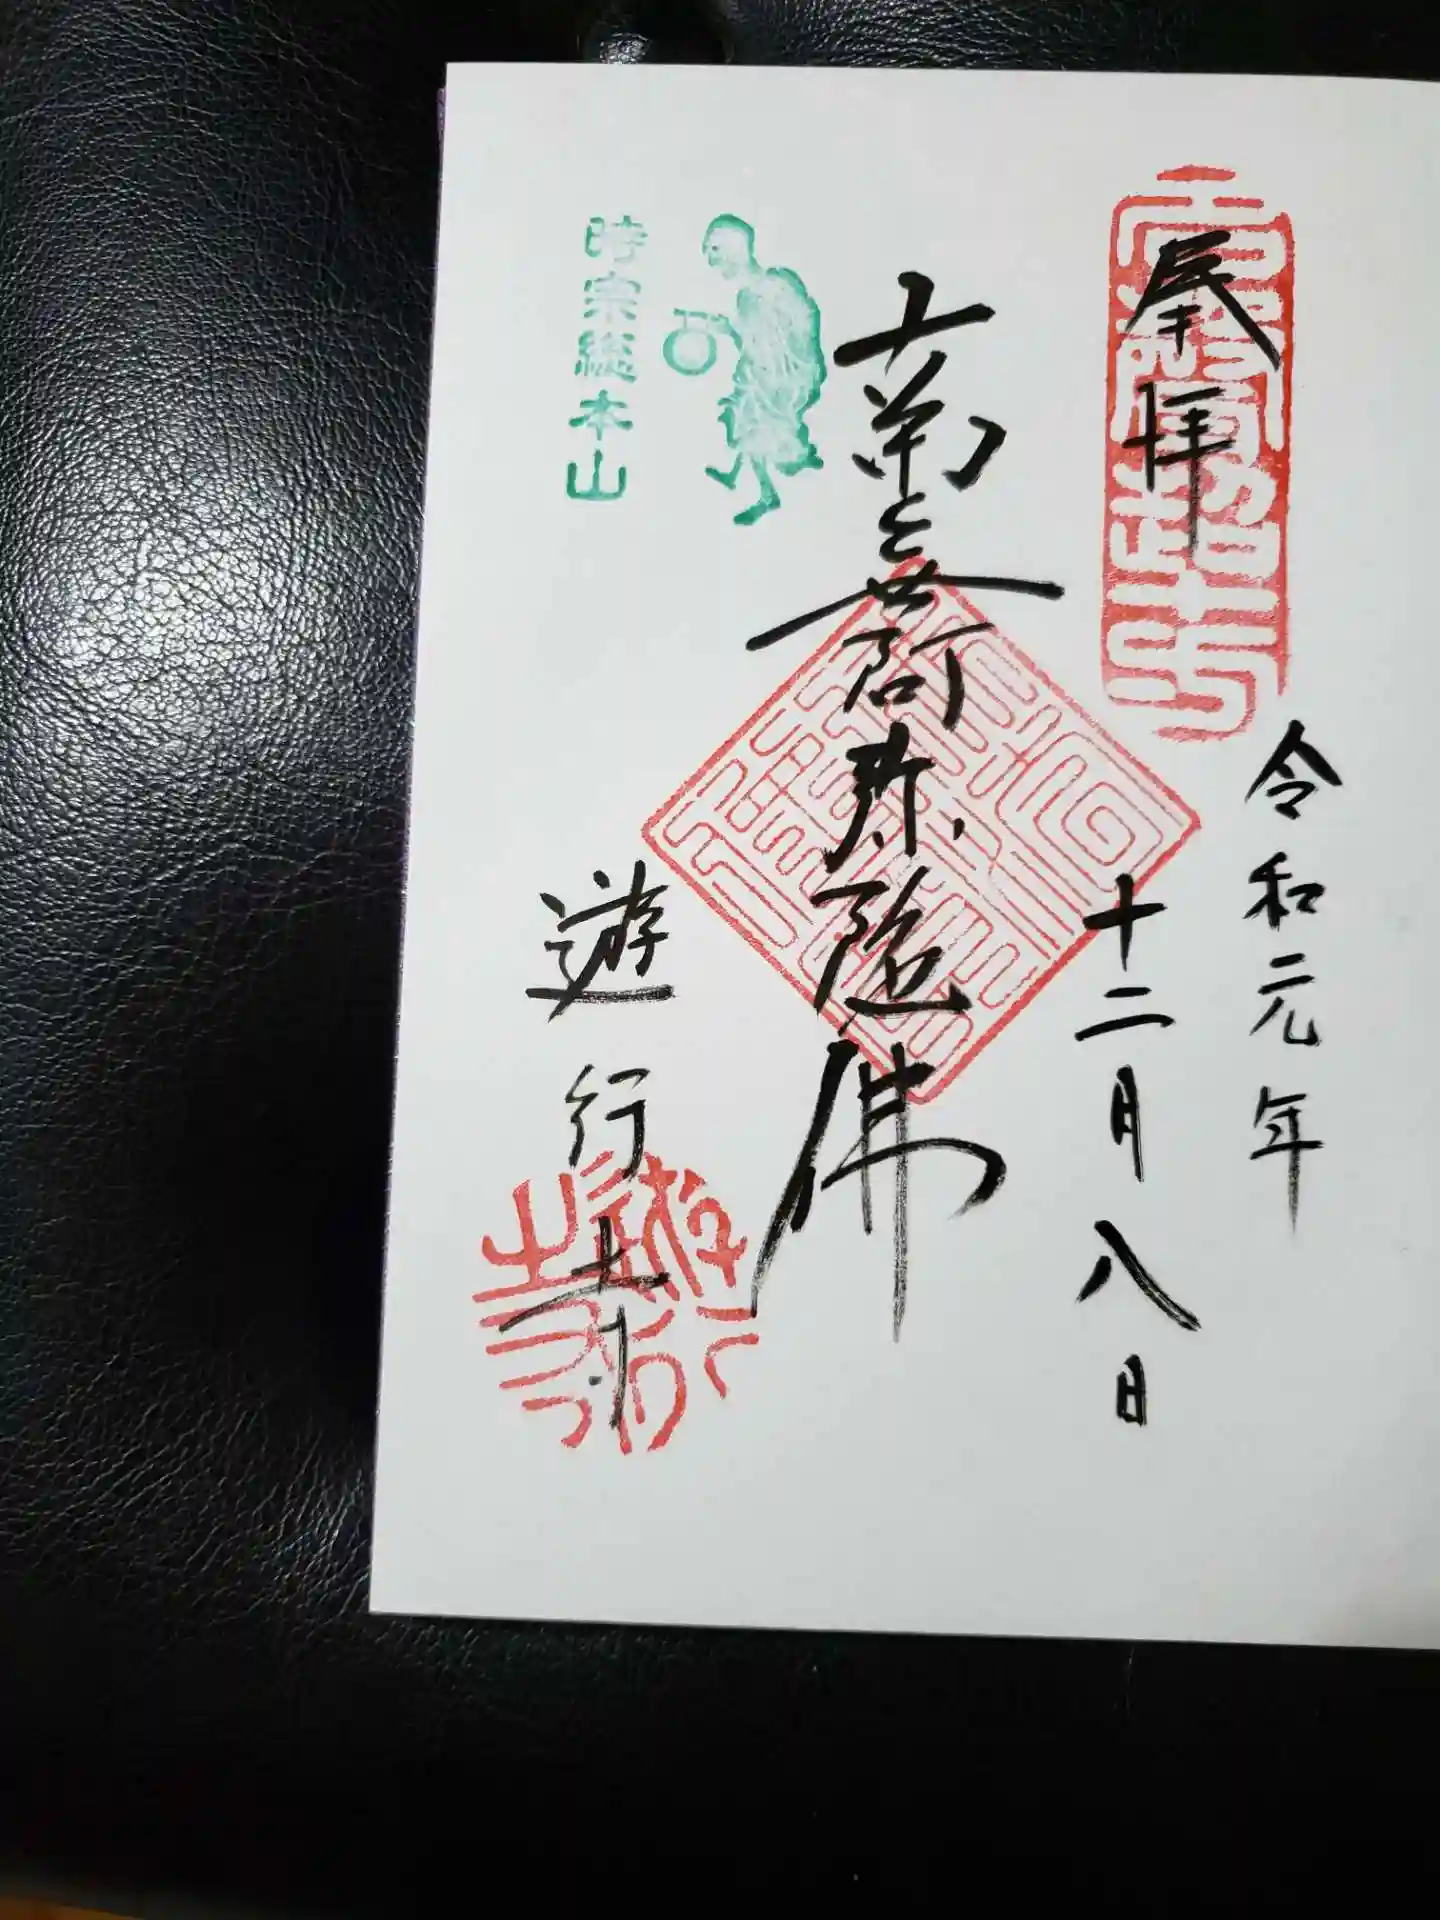 奉拝
令和元年
十二月八日
南無阿弥陀佛
時宗総本山
遊行寺